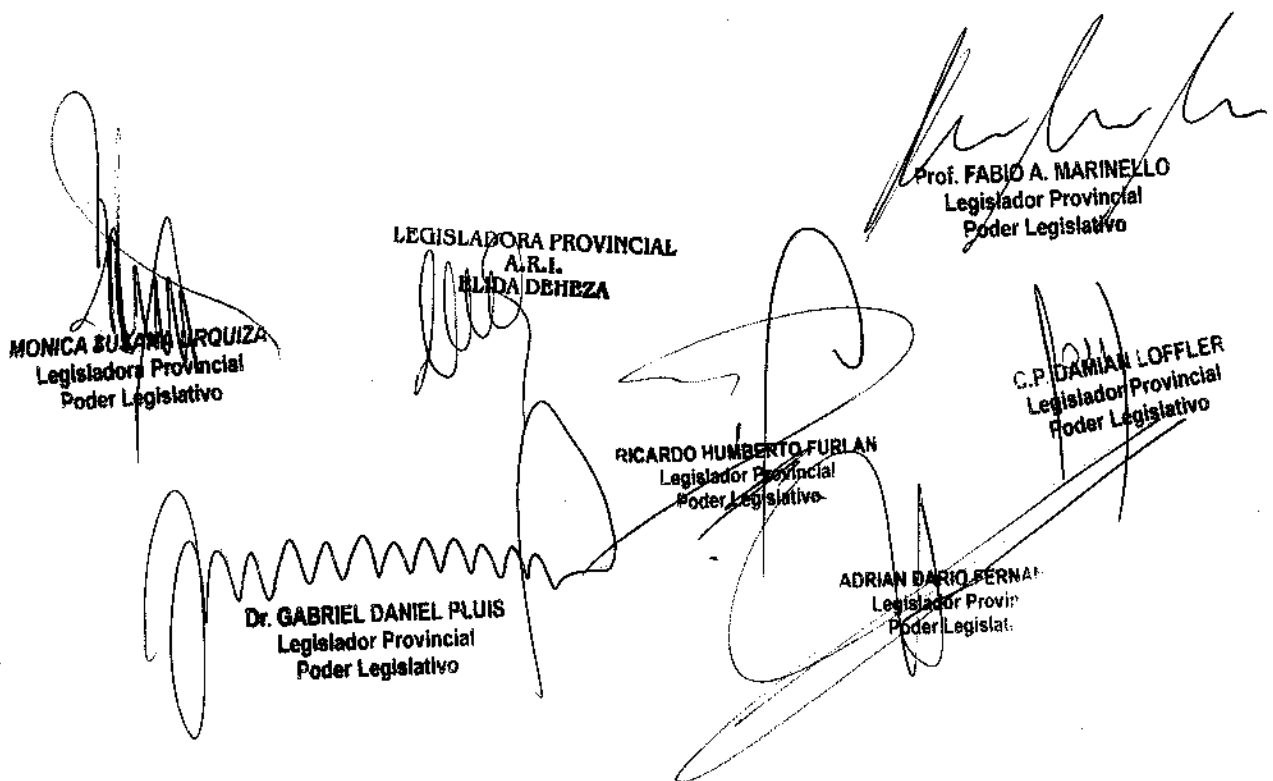 Prof. FABIO A. MARINELLO
Legislador Provincial
Poder Legislativo
LEGISLADORA PROVINCIAL
A.R.I.
ELIDA DEHEZA
MONICA SUSANA URQUIZA
Legisladora Provincial
Poder Legislativo
C.P. DAMIAN LOFFLER
Legislador Provincial
Poder Legislativo
RICARDO HUMBERTO FURLAN
Legislador Provincial
Poder Legislativo
ADRIAN DARIO FERNA
Legislador Provin
Poder Legislat
Dr. GABRIEL DANIEL PLUIS
Legislador Provincial
Poder Legislativo